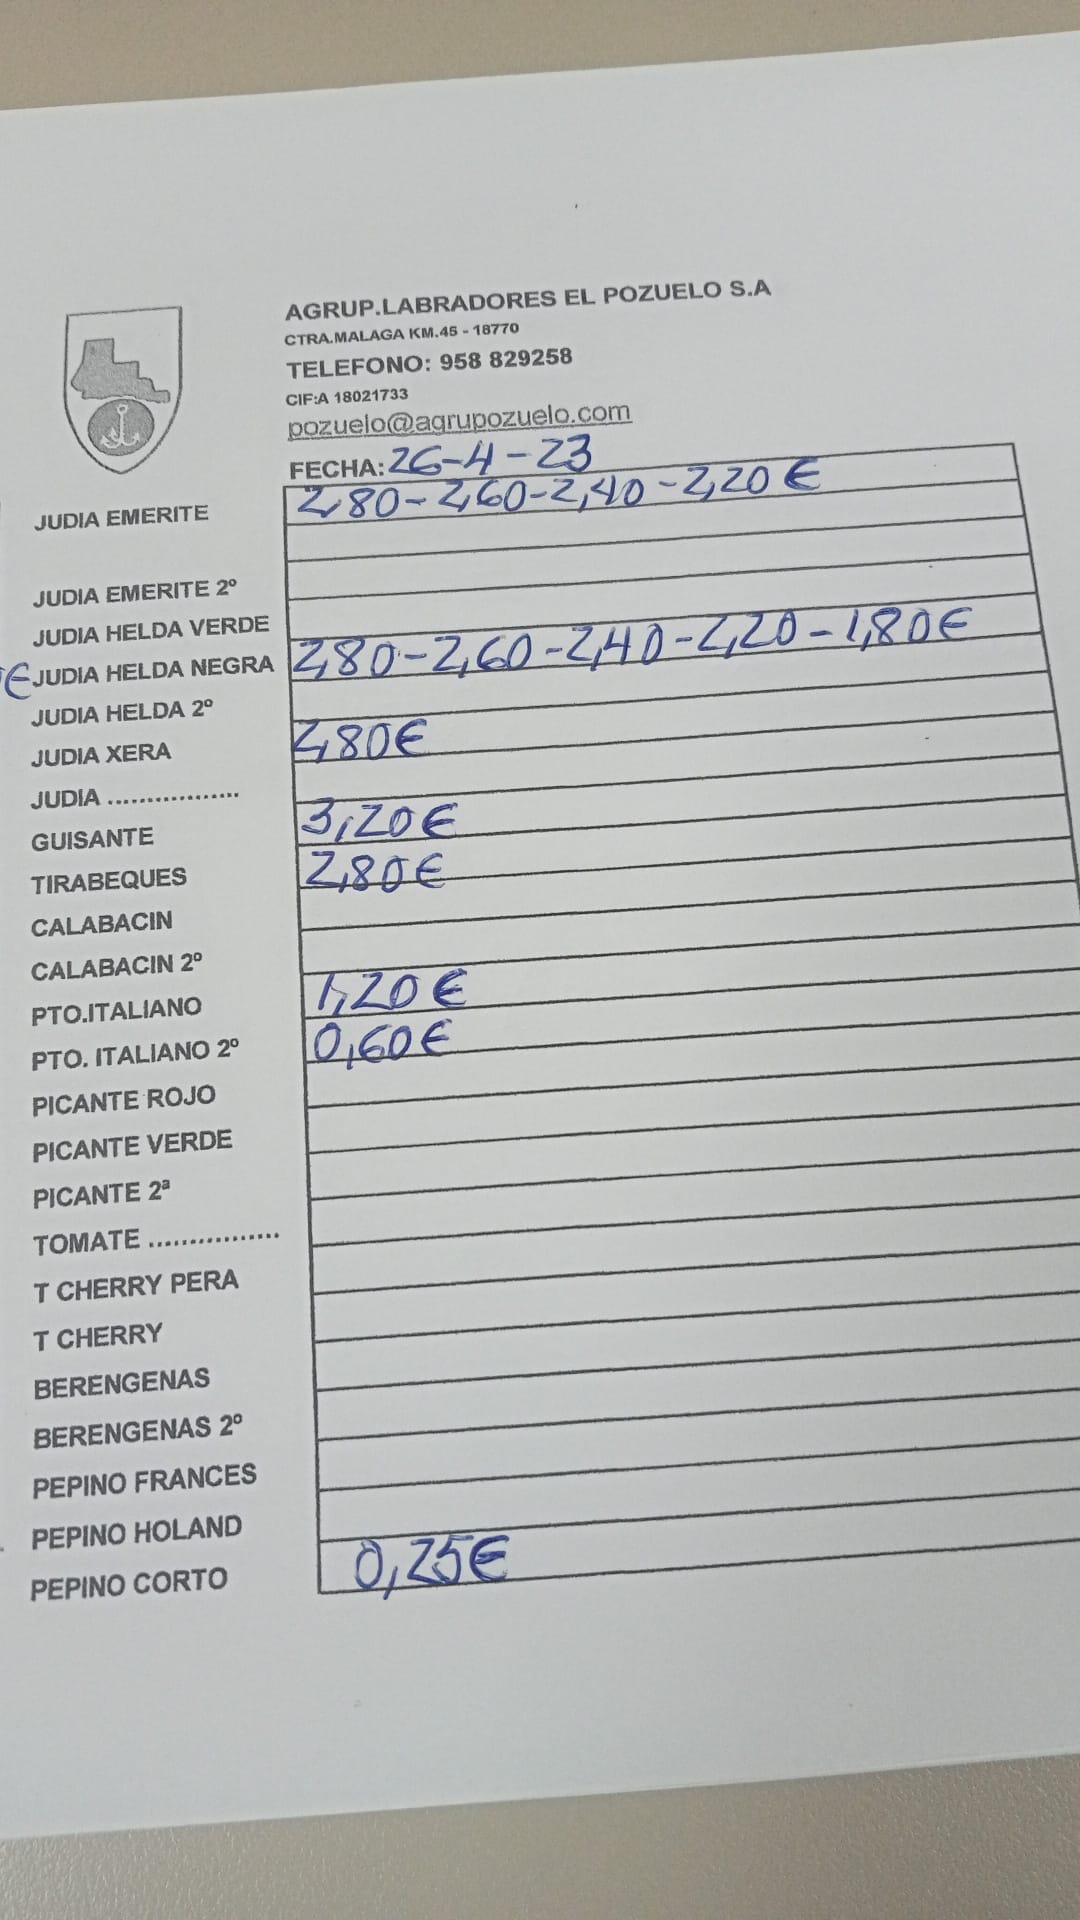 AGRUP.LABRADORES EL POZUELO S.A
CTRA.MALAGA KM.45 - 18770
TELEFONO: 958 829258
CIF:A 18021733
pozuelo@agrupozuelo.com
FECHA: 26-4-23
JUDIA EMERITE 2,80-2,60-2,40-2,20 €
JUDIA EMERITE 2º
JUDIA HELDA VERDE
€ JUDIA HELDA NEGRA 2,80-2,60-2,40-2,20-1,80€
JUDIA HELDA 2º
JUDIA XERA 2,80€
JUDIA .................
GUISANTE 3,20€
TIRABEQUES 2,80€
CALABACIN
CALABACIN 2º
PTO.ITALIANO 1,20€
PTO. ITALIANO 2º 0,60€
PICANTE ROJO
PICANTE VERDE
PICANTE 2ª
TOMATE ................
T CHERRY PERA
T CHERRY
BERENGENAS
BERENGENAS 2º
PEPINO FRANCES
PEPINO HOLAND
PEPINO CORTO 0,25€